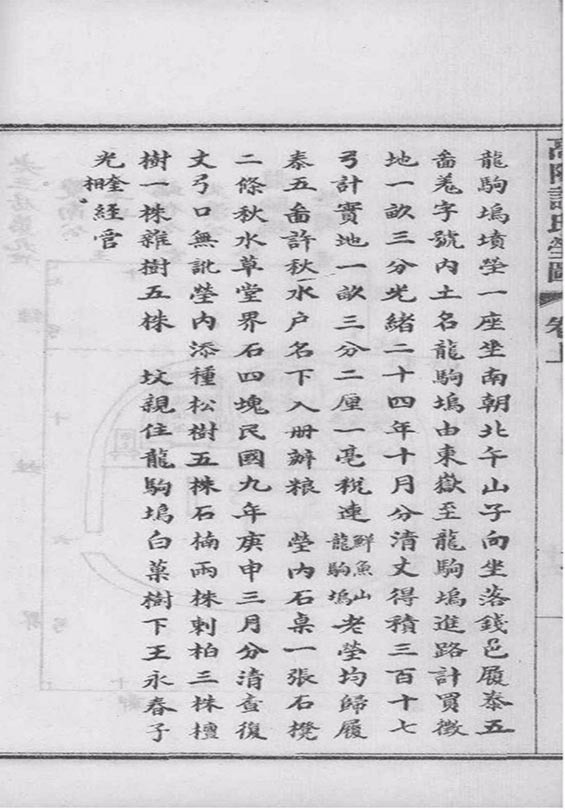 高陽許氏塋圖 卷上
龍駒塢墳塋一座坐南朝北午山子向坐落錢邑履泰五
畨羗字號內土名龍駒塢由東嶽至龍駒塢進路計買徵
地一畝三分光緒二十四年十月分清丈得積三百十七
弓計實地一畝三分二厘一毫稅連鮮魚山龍駒塢老塋均歸履
泰五畨許秋水户名下入册辦粮　塋內石桌一張石櫈
二條秋水草堂界石四塊民國九年庚申三月分清查復
文弓口無訛塋內添種松樹五株石楠兩株刺柏三株檀
樹一株雜樹五株　坟親住龍駒塢白菓樹下王永春子
光奎相經官